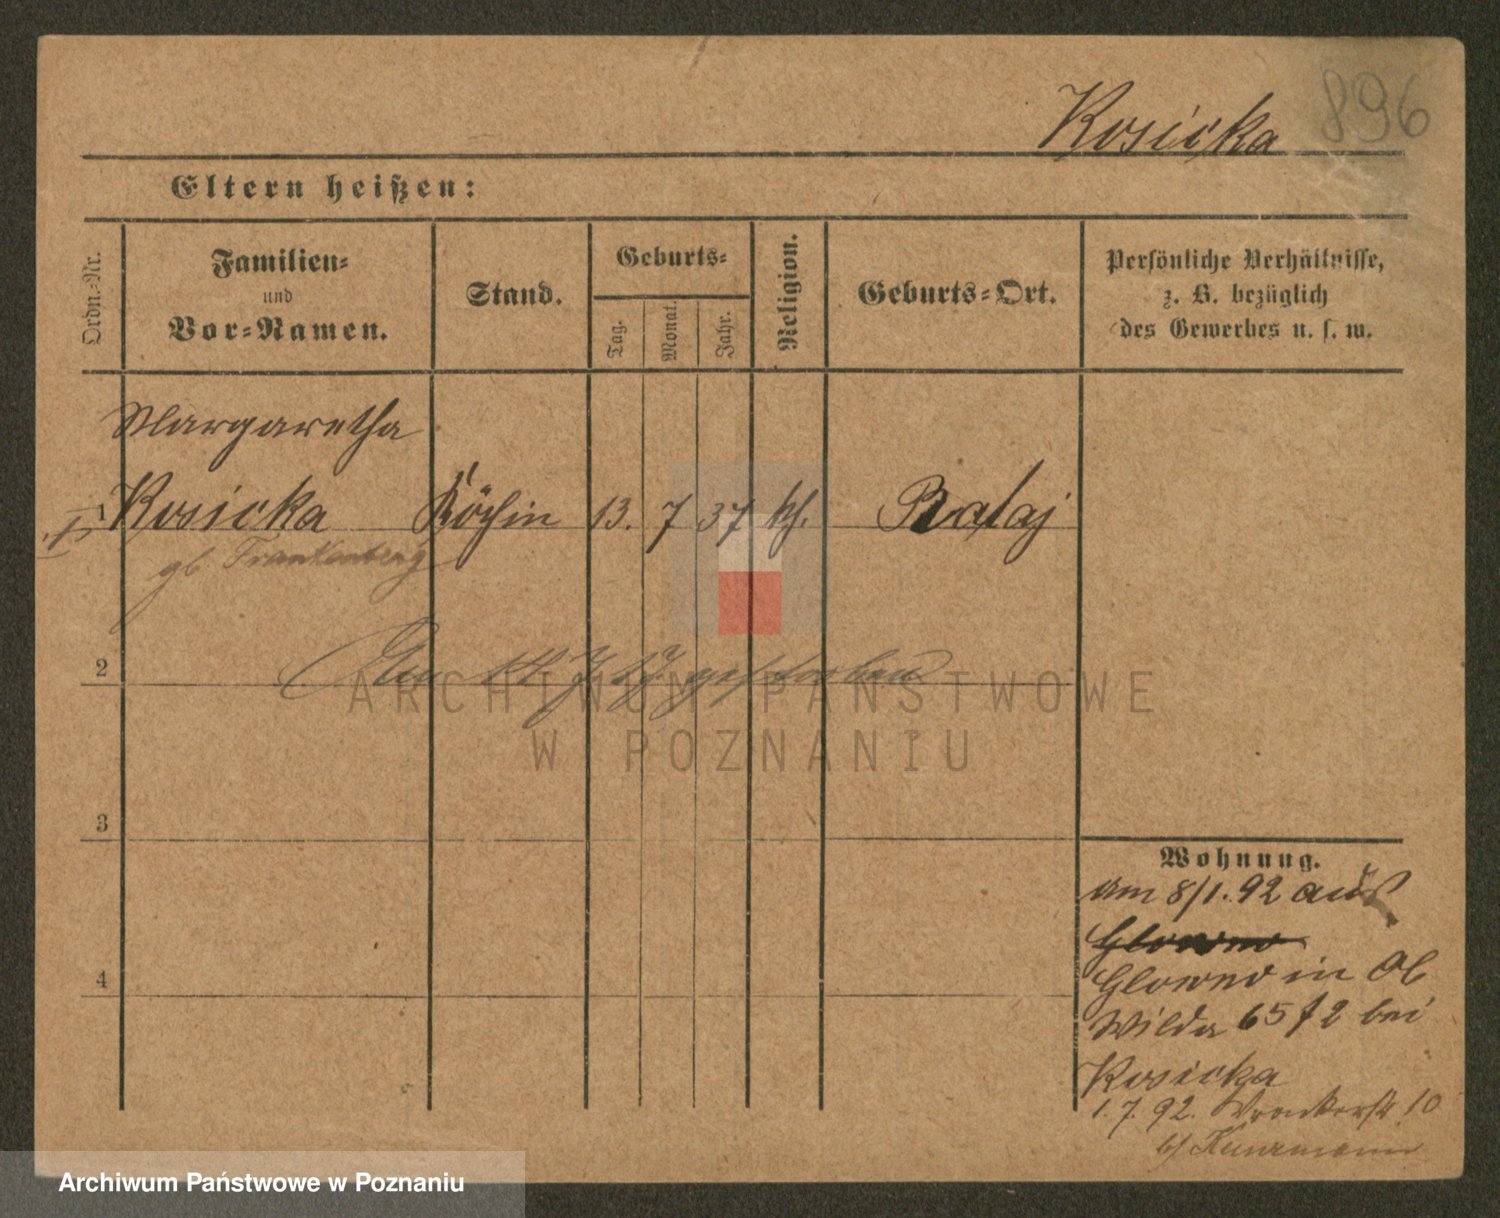 896
Kosicka
Eltern heißen:
Ordn.-Nr.
Familien-
und
Vor-Namen.
Stand.
Geburts-
Tag.
Monat.
Jahr.
Religion.
Geburts-Ort.
Persönliche Verhältnisse,
z. B. bezüglich
des Gewerbes u. s. w.
Margaretha
1 Kosicka Köchin 13. 7 37 kh. Rataj
gb Frankenberg
2 gestorben
3
4
Wohnung.
am 8/1. 92 aus
Glowno
Glowno in Ob
Wilda 65 f 2 bei
Kosicka
1. 7. 92. Wronkerstr 10
b/
ARCHIWUM PAŃSTWOWE
W POZNANIU
Archiwum Państwowe w Poznaniu